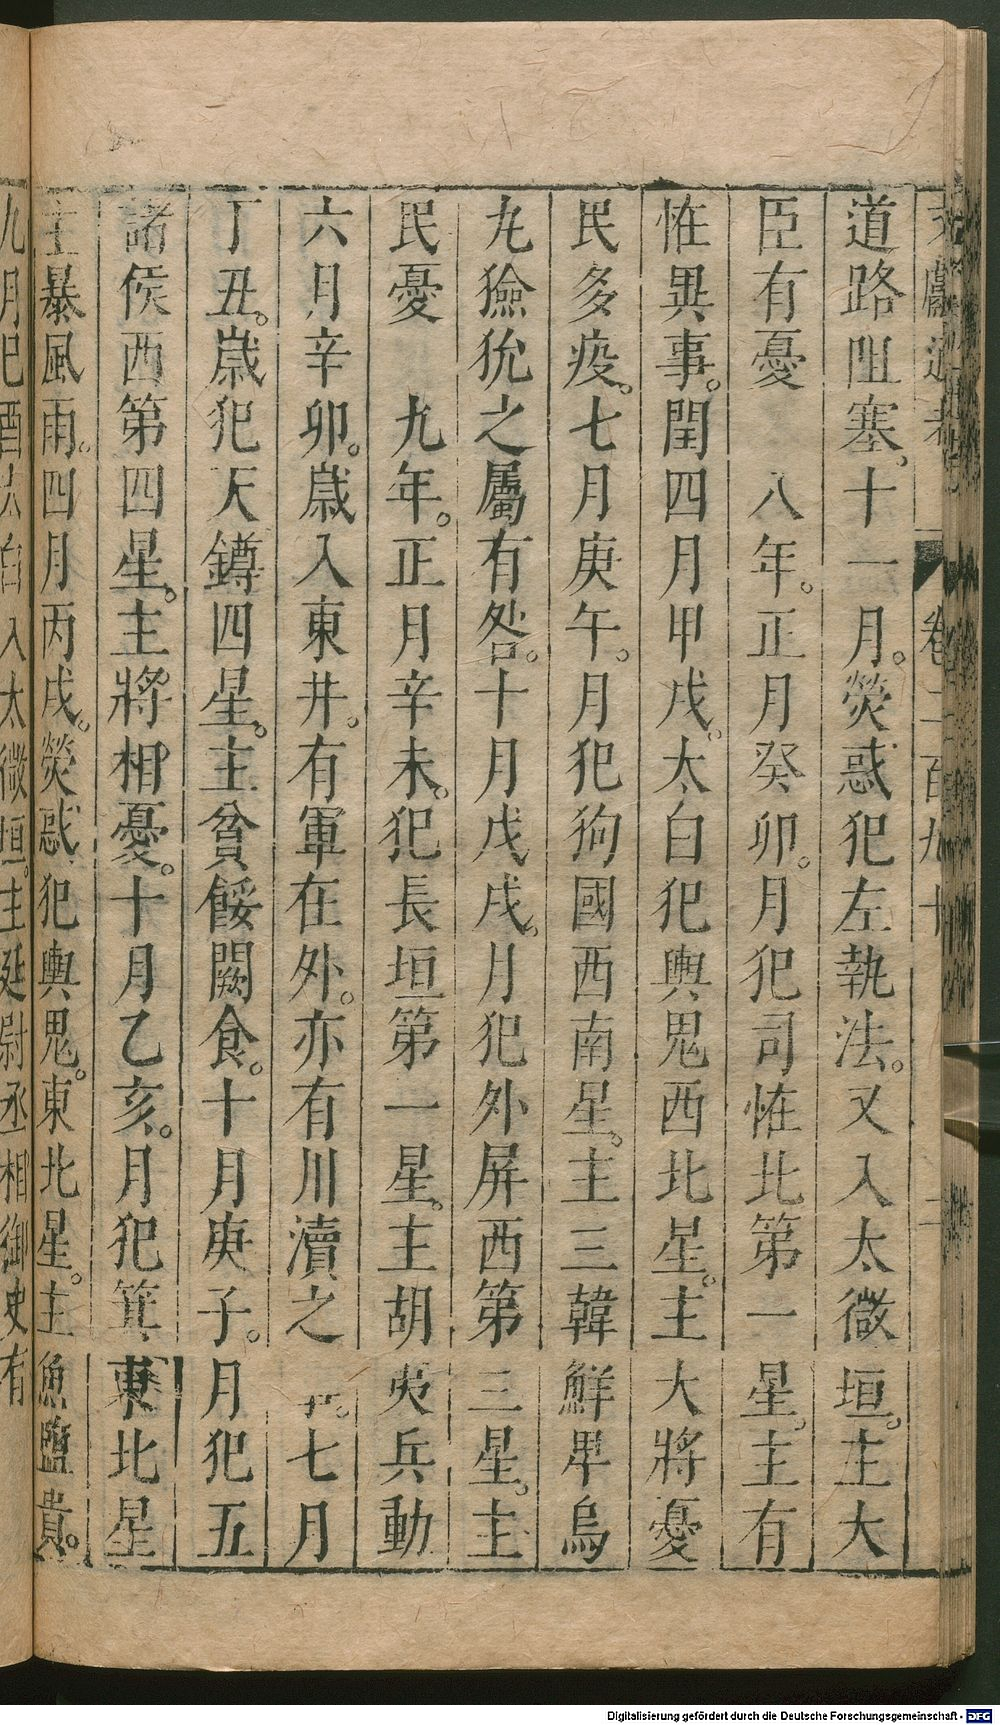 文獻通考 卷二百九十 二
道路阻塞。十一月。熒惑犯左執法。又入太微垣。主大
臣有憂 八年。正月癸卯。月犯司恠北第一星。主有
恠異事。閏四月甲戌。太白犯輿鬼西北星。主大將憂
民多疫。七月庚午。月犯狗國西南星。主三韓鮮卑烏
丸獫狁之屬有咎。十月戊戌。月犯外屏西第三星。主
民憂 九年。正月辛未。犯長垣第一星。主胡夷兵動
六月辛卯。歲入東井。有軍在外。亦有川瀆之 。七月
丁丑。歲犯天鐏四星。主貧餒闕食。十月庚子。月犯五
諸侯西第四星。主將相憂。十月乙亥。月犯箕東北星
主暴風雨。四月丙戌。熒惑犯輿鬼。東北星。主魚鹽貴。
九月巳酉太白入太微垣。主延尉丞相御史有
Digitalisierung gefördert durch die Deutsche Forschungsgemeinschaft - DFG